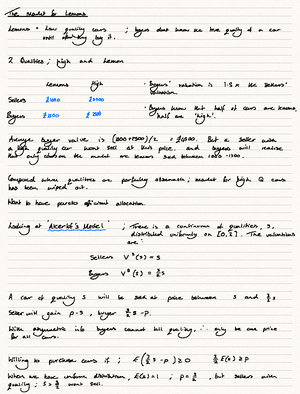 The Market for Lemons
Lemons = Low quality cars ; buyers dont know the true quality of a car
until after they buy it.
2 Qualities ; high and Lemon
Lemons High
Sellers £1000 £2000
Buyers £1500
· Buyers' valuation is 1.5 x the Sellers'
valuation.
· Buyers know that half of cars are lemons,
half are 'high'.
Average buyer value is /2 = But a Seller with
a high quality car wont sell at this price. and buyers will realise
that only cars on the market are lemons sold between 1000 - 1500.
Compared where qualities are perfectly observable ; market for high Q cars
has been wiped out.
Want to have pareto efficient allocation.
Looking at 'Akerlof's Model' ; There is a continuum of qualities, s,
distributed uniformly on [0,2]. The valuations
are:
Sellers Vˢ(s) = s
Buyers Vᴮ(s) = 3/2 s
A car of quality s will be sold at price between s and 3/2 s
Seller will gain p-s, buyer 3/2 s - p.
With asymmetric info buyers cannot tell quality, ∴ only be one price
for all cars.
Willing to purchase cars if ; E(3/2 s - p) ≥ 0 3/2 E(s) ≥ p
When we have uniform distribution, E(s) = 1 ; p = 3/2 , but sellers with
quality ; s > 3/2 wont sell.